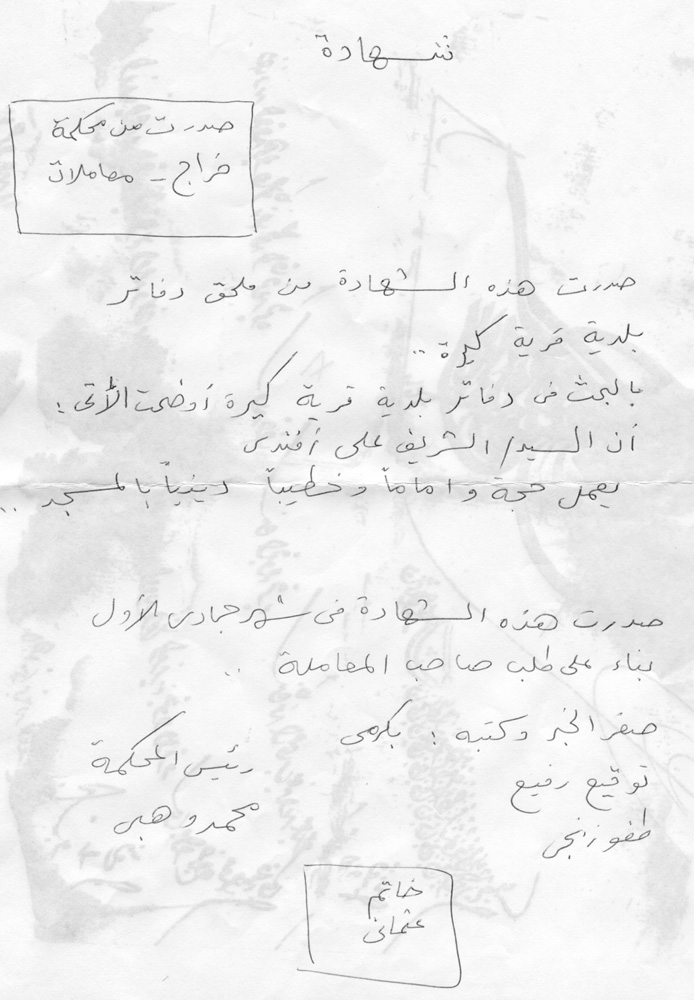 شهادة
صدرت من محكمة
خراج - معاملات
صدرت هذه الشهادة من ملحق دفاتر
بلدية قرية كيرة ..
بالبحث فى دفاتر بلدية قرية كيرة أوضحت الأتى :
أن السيد / الشريف على أفندى
يعمل حجة و اماماً و خطيباً دينياً بالمسجد ..
صدرت هذه الشهادة فى شهر جمادى الأول
بناء على طلب صاحب المعاملة ..
الخبر وكتبه : بكرمى
توقيع رفيع
رئيس المحكمة
محمد وهبى
خاتم
عثمانى